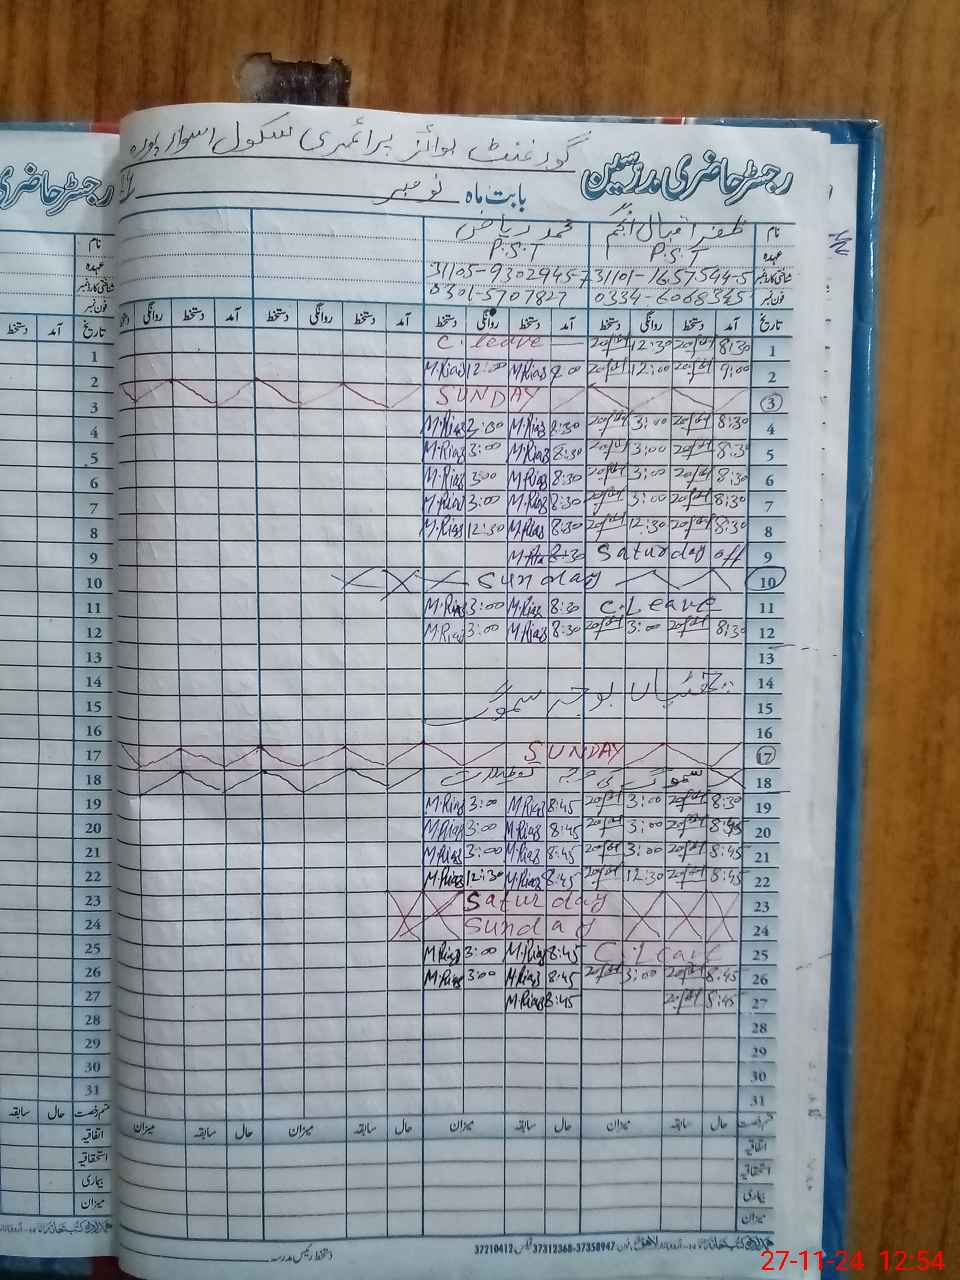 گورنمنٹ بوائز پرائمری سکول اسوار پورہ
رجسٹر حاضری مدرسین
بابت ماہ نومبر
رجسٹر حاضری
نام ظفر اقبال انجم محمد ریاض
عہدہ P.S.T P.S.T
شناختی کارڈ نمبر 31101-1657544-5 31105-9302945-7
فون نمبر 0334-6068345 0301-5707827
تاریخ آمد دستخط روانگی دستخط آمد دستخط روانگی دستخط آمد دستخط روانگی دستخط آمد دستخط روانگی
1 8:30 12:30 C. leave
2 9:00 12:00 9:00 M.Riaz 12:00 M.Riaz
3 SUNDAY
4 8:30 3:00 8:30 M.Riaz M.Riaz
5 8:30 3:00 8:30 M.Riaz 3:00 M.Riaz
6 8:30 3:00 8:30 M.Riaz 3:00 M.Riaz
7 8:30 3:00 8:30 M.Riaz 3:00 M.Riaz
8 8:30 12:30 8:30 M.Riaz 12:30 M.Riaz
9 Saturday off
10 Sunday
11 C.Leave 8:30 M.Riaz 3:00 M.Riaz
12 8:30 3:00 8:30 M.Riaz 3:00 M.Riaz
13
14 چھٹیاں بوجہ سموگ
15
16
17 SUNDAY
18 سموگ کی وجہ تعطیلات
19 8:30 3:00 8:45 M.Riaz 3:00 M.Riaz
20 8:45 3:00 8:45 M.Riaz 3:00 M.Riaz
21 8:45 3:00 8:45 M.Riaz 3:00 M.Riaz
22 8:45 12:30 8:45 M.Riaz 12:30 M.Riaz
23 Saturday
24 Sunday
25 C.Leave 8:45 M.Riaz 3:00 M.Riaz
26 8:45 3:00 8:45 M.Riaz 3:00 M.Riaz
27 8:45 8:45 M.Riaz
28
29
30
31
قسم رخصت حال سابقہ میزان حال سابقہ میزان حال سابقہ میزان حال سابقہ میزان
اتفاقیہ
استحقاقیہ
بیماری
میزان
37210412 فیکس 37312368-37358947
دستخط رئیس مدرسہ
27-11-24 12:54